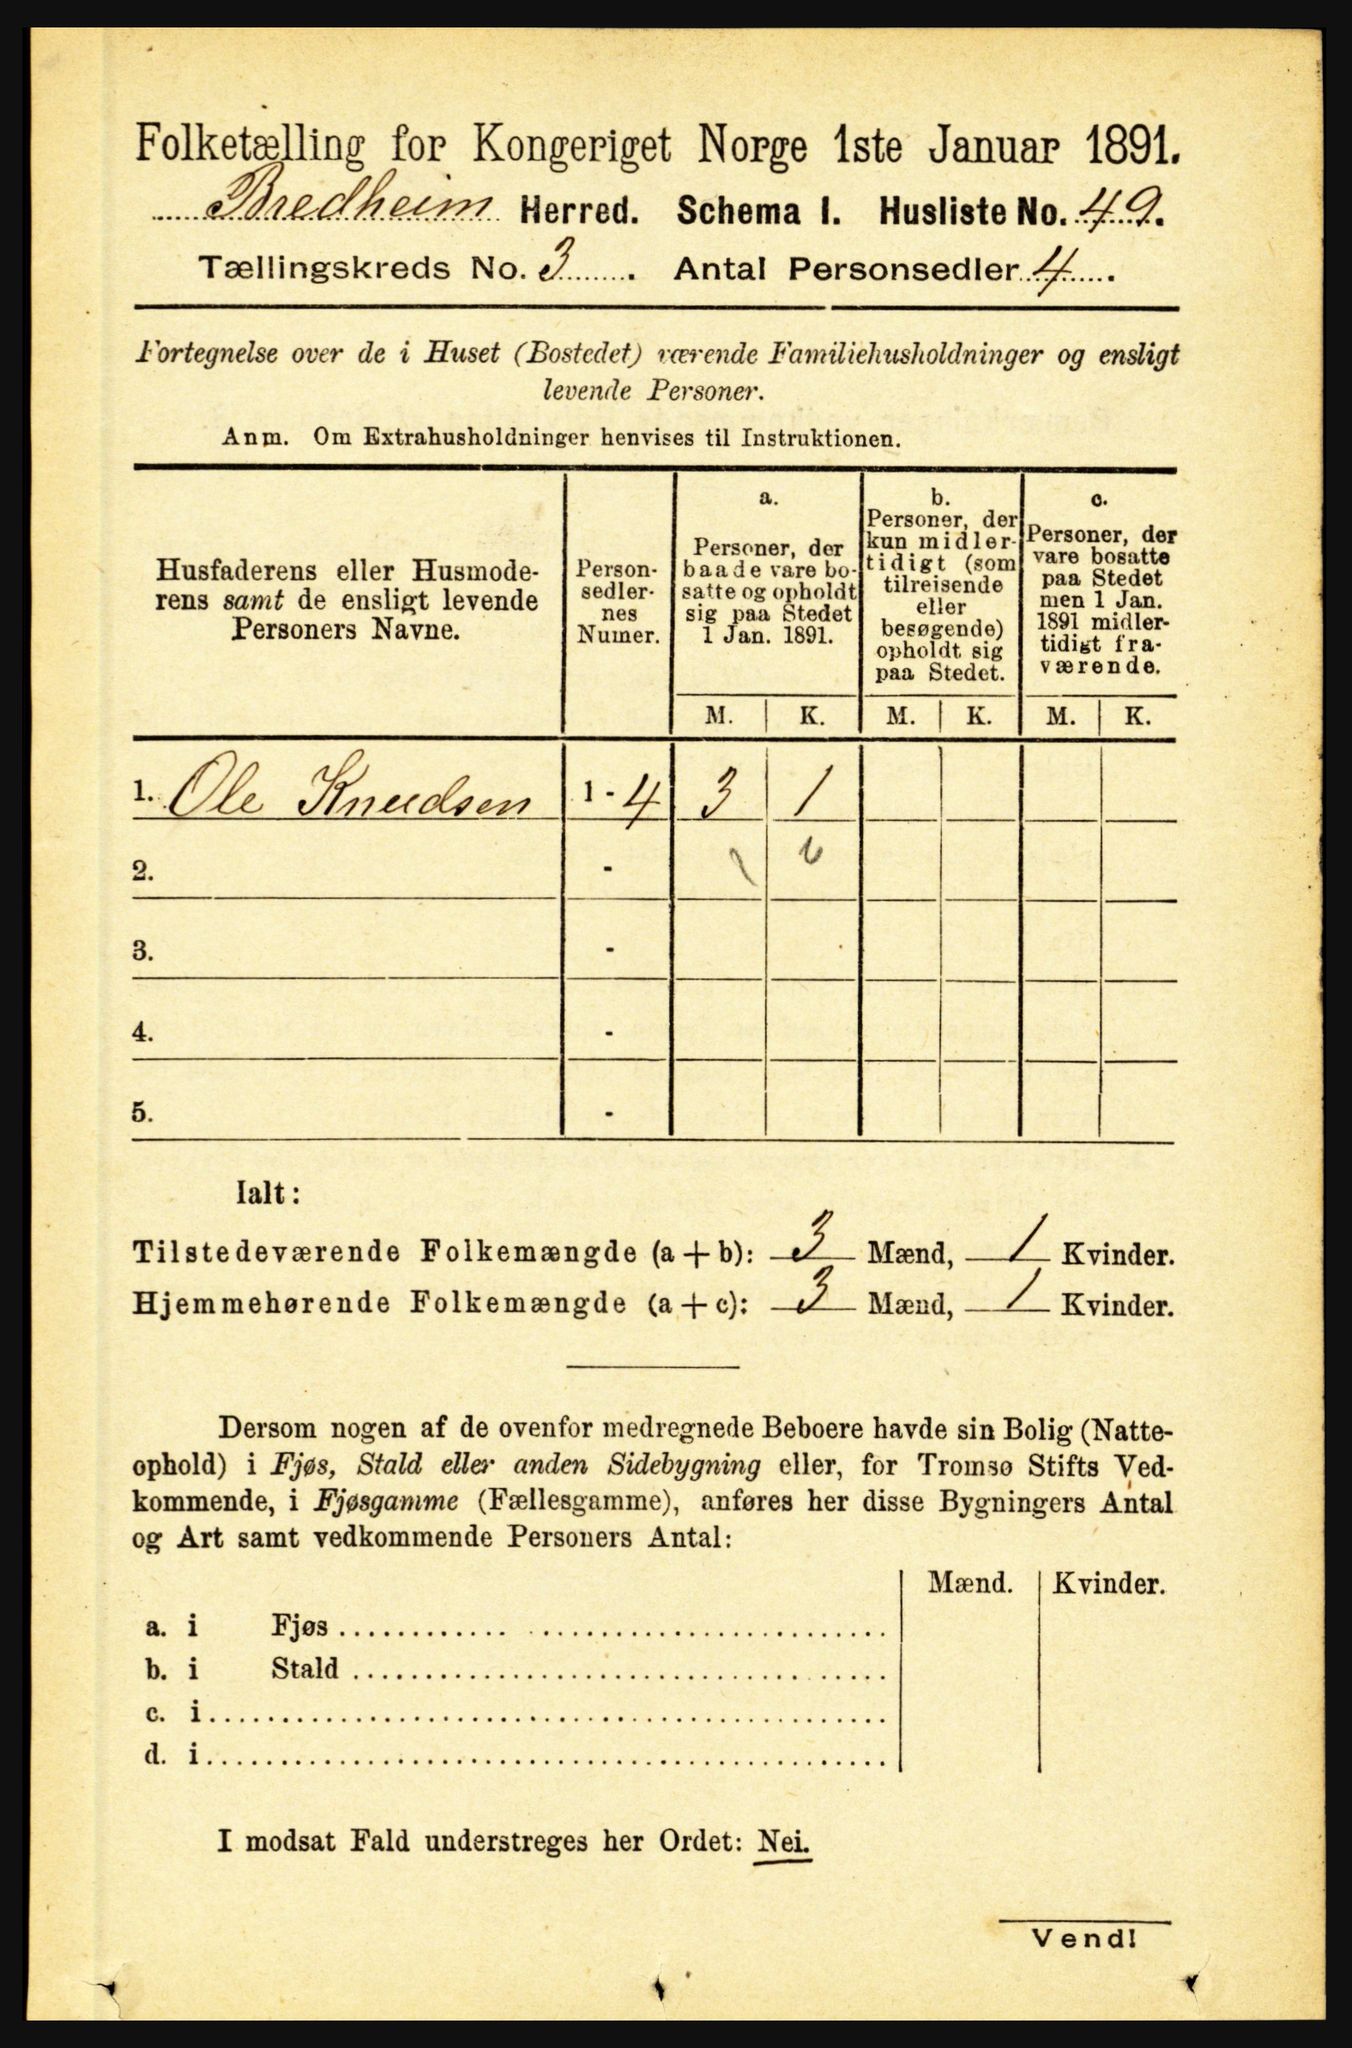 Folketælling for Kongeriget Norge 1ste Januar 1891.
Bredheim Herred. Schema I. Husliste No. 49.
Tællingskreds No. 3. Antal Personsedler 4.
Fortegnelse over de i Huset (Bostedet) værende Familiehusholdninger og ensligt
levende Personer.
Anm. Om Extrahusholdninger henvises til Instruktionen.
Husfaderens eller Husmode-
rens samt de ensligt levende
Personers Navne.
Person-
sedler-
nes
Numer.
a.
Personer, der
baade vare bo-
satte og opholdt
sig paa Stedet
1 Jan. 1891.
b.
Personer, der
kun midler-
tidigt (som
tilreisende
eller
besøgende)
opholdt sig
paa Stedet.
c.
Personer, der
vare bosatte
paa Stedet
men 1 Jan.
1891 midler-
tidigt fra-
værende.
M. K. M. K. M. K.
1. Ole Knudsen 1 - 4 3 1
2. -
3. -
4. -
5. -
Ialt:
Tilstedeværende Folkemængde (a + b): 3 Mænd, 1 Kvinder.
Hjemmehørende Folkemængde (a + c): 3 Mænd, 1 Kvinder.
Dersom nogen af de ovenfor medregnede Beboere havde sin Bolig (Natte-
ophold) i Fjøs, Stald eller anden Sidebygning eller, for Tromsø Stifts Ved-
kommende, i Fjøsgamme (Fællesgamme), anføres her disse Bygningers Antal
og Art samt vedkommende Personers Antal:
Mænd. Kvinder.
a. i Fjøs
b. i Stald
c. i
d. i
I modsat Fald understreges her Ordet: Nei.
Vend!